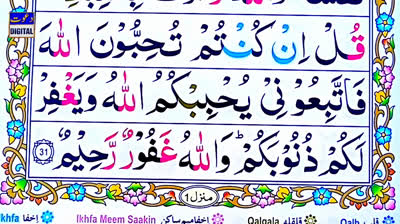 دعوت
DIGITAL
قُلْ اِنْ كُنْتُمْ تُحِبُّوْنَ اللّٰهَ
فَاتَّبِعُوْنِیْ یُحْبِبْكُمُ اللّٰهُ وَیَغْفِرْ
لَكُمْ ذُنُوْبَكُمْ ؕ وَاللّٰهُ غَفُوْرٌ رَّحِیْمٌ ٣١
منزل ١
khfa اخفا Ikhfa Meem Saakin اخفا میم ساکن Qalqala قلقله Qalb قلب